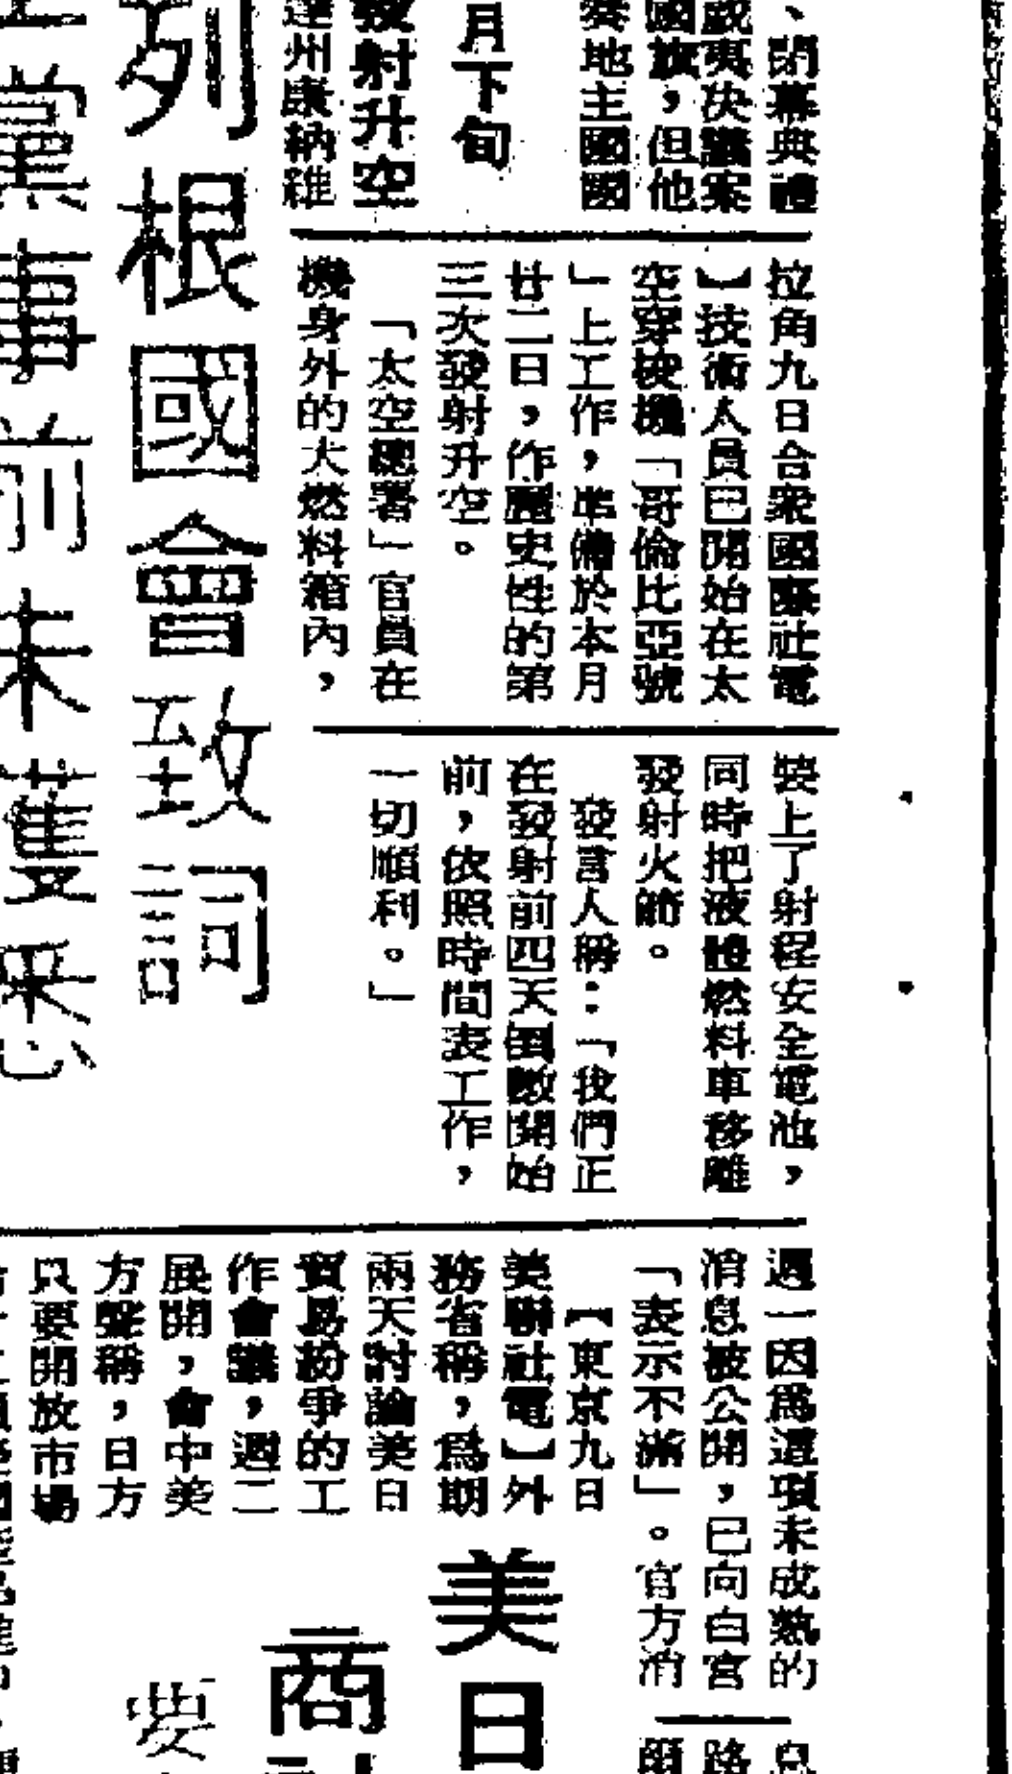 、閉幕典禮
威夷決議案
國旗，但他
賽地主國國
月下旬
發射升空
達州康納維
拉角九日合衆國際社電
】技術人員已開始在太
空穿梭機「哥倫比亞號
」上工作，準備於本月
廿二日，作歷史性的第
三次發射升空。
「太空總署」官員在
機身外的大燃料箱內，
裝上了射程安全電池，
同時把液體燃料車移離
發射火箭。
發言人稱：「我們正
在發射前四天倒數開始
前，依照時間表工作，
一切順利。」
列根國會致詞
黨事前未獲悉
週一因爲這項未成熟的
消息被公開，已向白宮
「表示不滿」。官方消
息
路
美日
商
要
【東京九日
美聯社電】外
務省稱，爲期
兩天討論美日
貿易紛爭的工
作會議，週二
展開，會中美
方聲稱，日方
只要開放市場